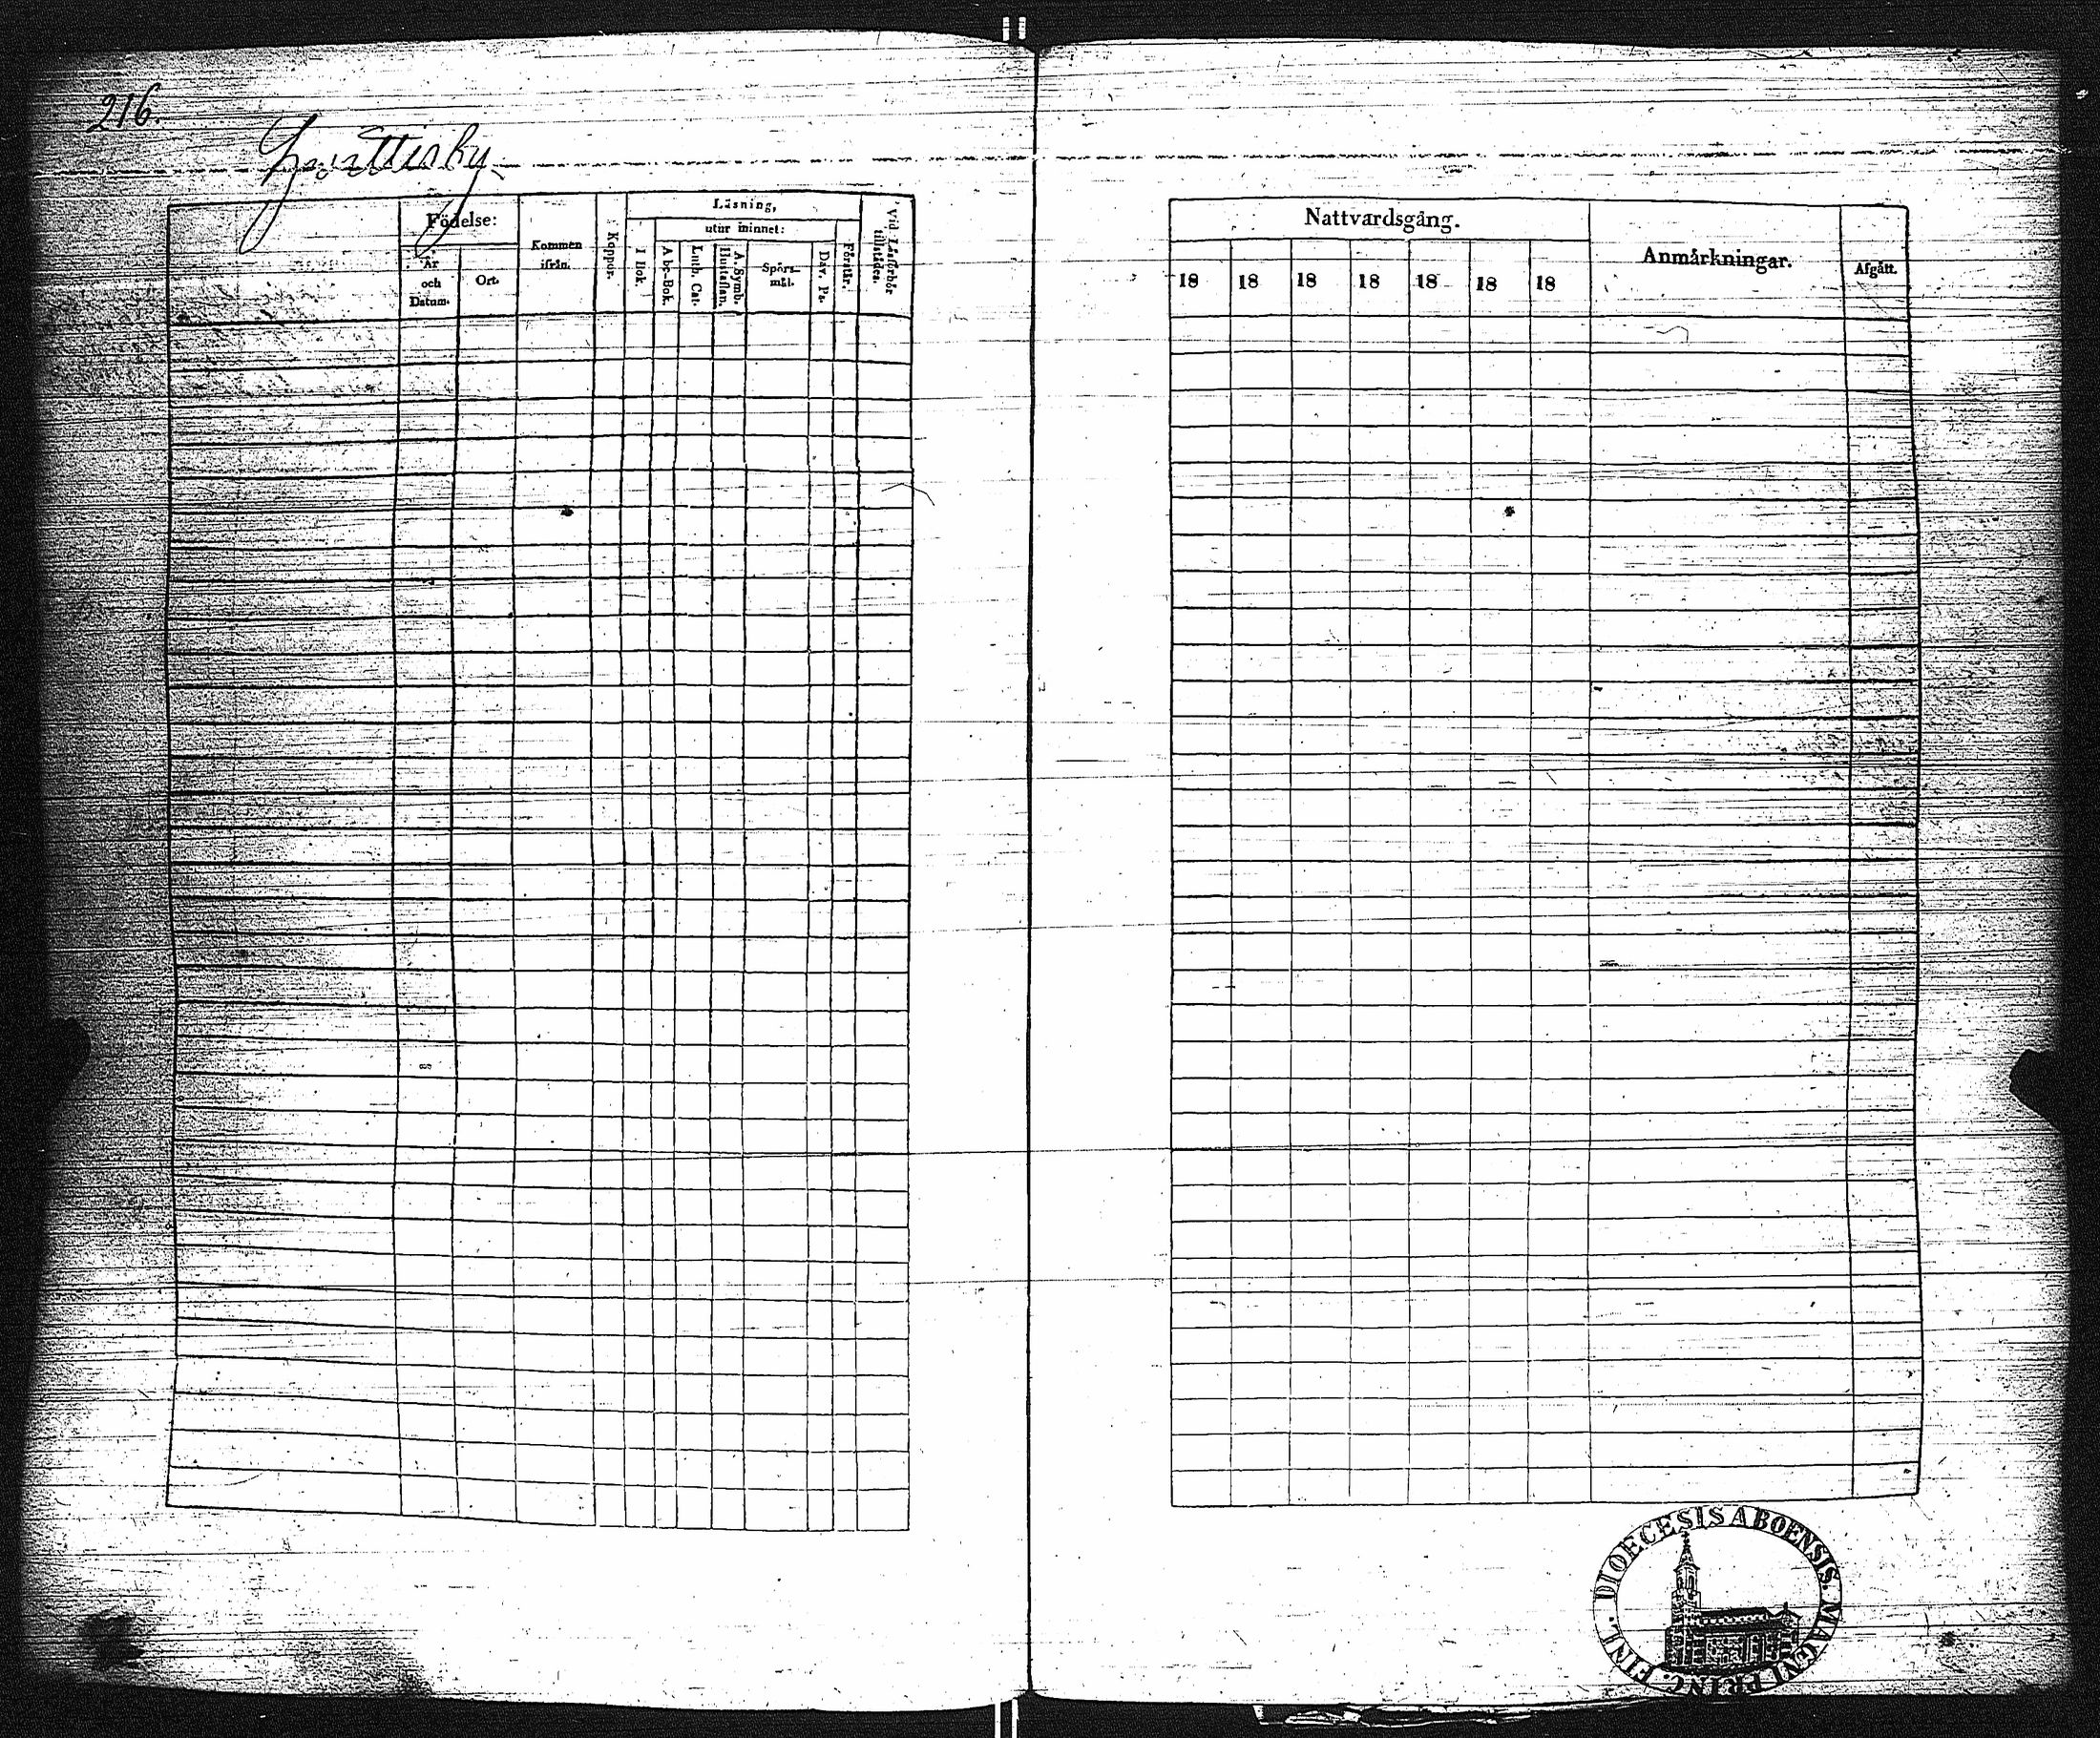 216.
Födelse:
År och Datum.
Ort.
Kommen ifrån.
Koppor.
Läsning,
I Bok.
utur minnet:
Abc-Bok.
Luth. Cat.
A. Symb. Hustaflan.
Spörs-mål.
Dav. Ps.
Förstår.
Vid Läsförhör tillstädes.
Nattvardsgång.
18 18 18 18 18 18 18
Anmärkningar.
Afgått.
DIOECESIS ABOENSIS. MAGNI PRINC. FINL.